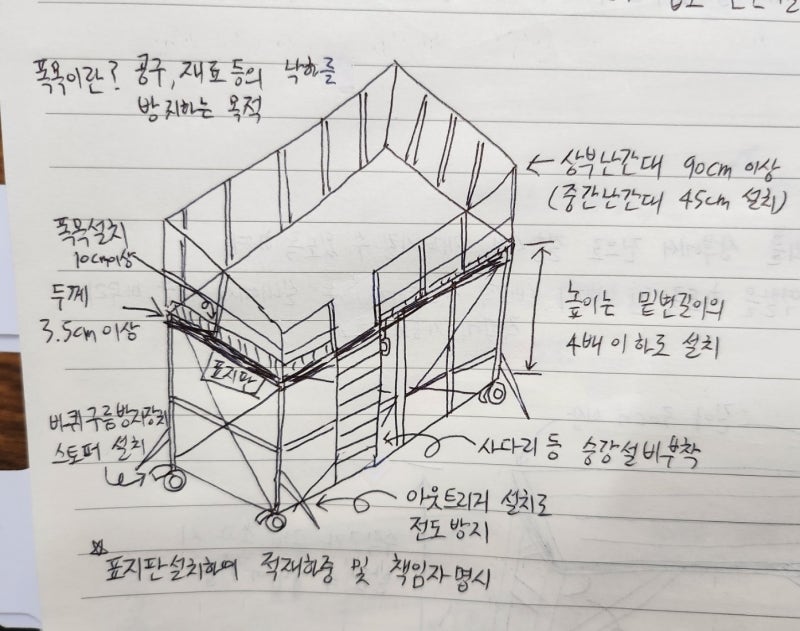 폭목이란? 공구, 재료 등의 낙하를
방지하는 목적
← 상부난간대 90cm 이상
(중간난간대 45cm 설치)
폭목설치
10cm이상
두께
3.5cm 이상
높이는 밑변길이의
4배 이하로 설치
표지판
바퀴구름방지장치
스토퍼 설치
사다리 등 승강설비부착
아웃트리거 설치로
전도방지
* 표지판설치하여 적재하중 및 책임자명시